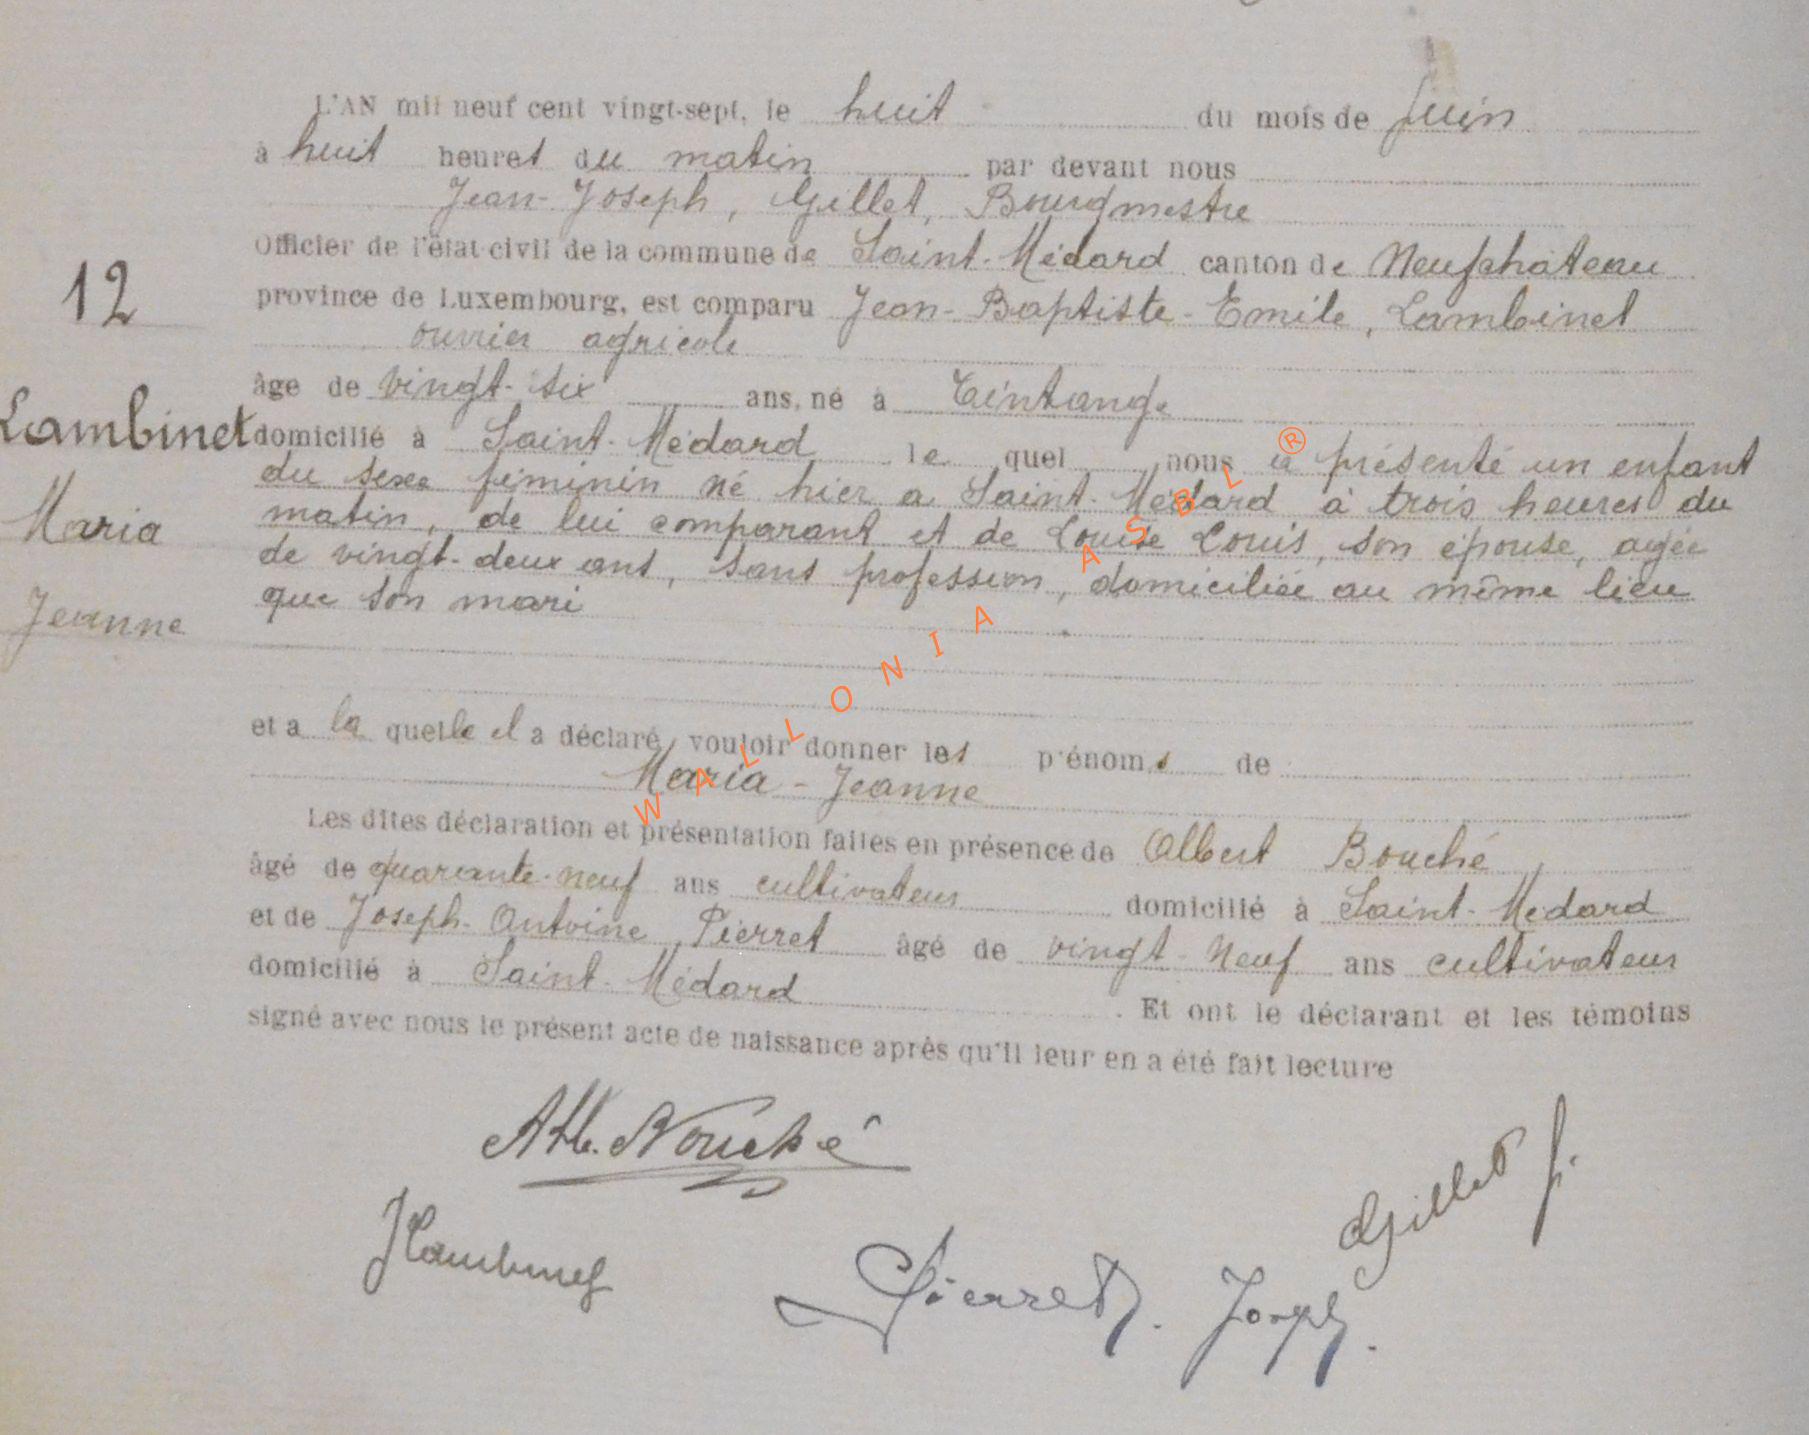 L'AN mil neuf cent vingt-sept, le huit du mois de Juin
à huit heures du matin par devant nous
Jean-Joseph, Gillet, Bourgmestre
Officier de l'état civil de la commune de Saint-Médard canton de Neufchâteau
12
province de Luxembourg, est comparu Jean-Baptiste-Emile, Lambinet
ouvrier agricole
âgé de vingt-six ans, né à Tintange
Lambinet
domicilié à Saint-Médard le quel nous a présenté un enfant
du sexe féminin né hier à Saint-Médard à trois heures du
Maria
matin, de lui comparant et de Louise Louis, son épouse, agée
de vingt-deux ans, sans profession, domiciliée au même lieu
Jeanne
que son mari
et a la quelle il a déclaré vouloir donner les prénoms de
Maria-Jeanne
Les dites déclaration et présentation faites en présence de Albert Bouché
âgé de quarante-neuf ans cultivateur domicilié à Saint-Médard
et de Joseph-Antoine Pierret âgé de vingt-neuf ans cultivateur
domicilié à Saint-Médard. Et ont le déclarant et les témoins
signé avec nous le présent acte de naissance après qu'il leur en a été fait lecture
Alb. Bouché
Gillet J.
JLambinet
Pierret. Joseph.
WALLONIA ASBL ®